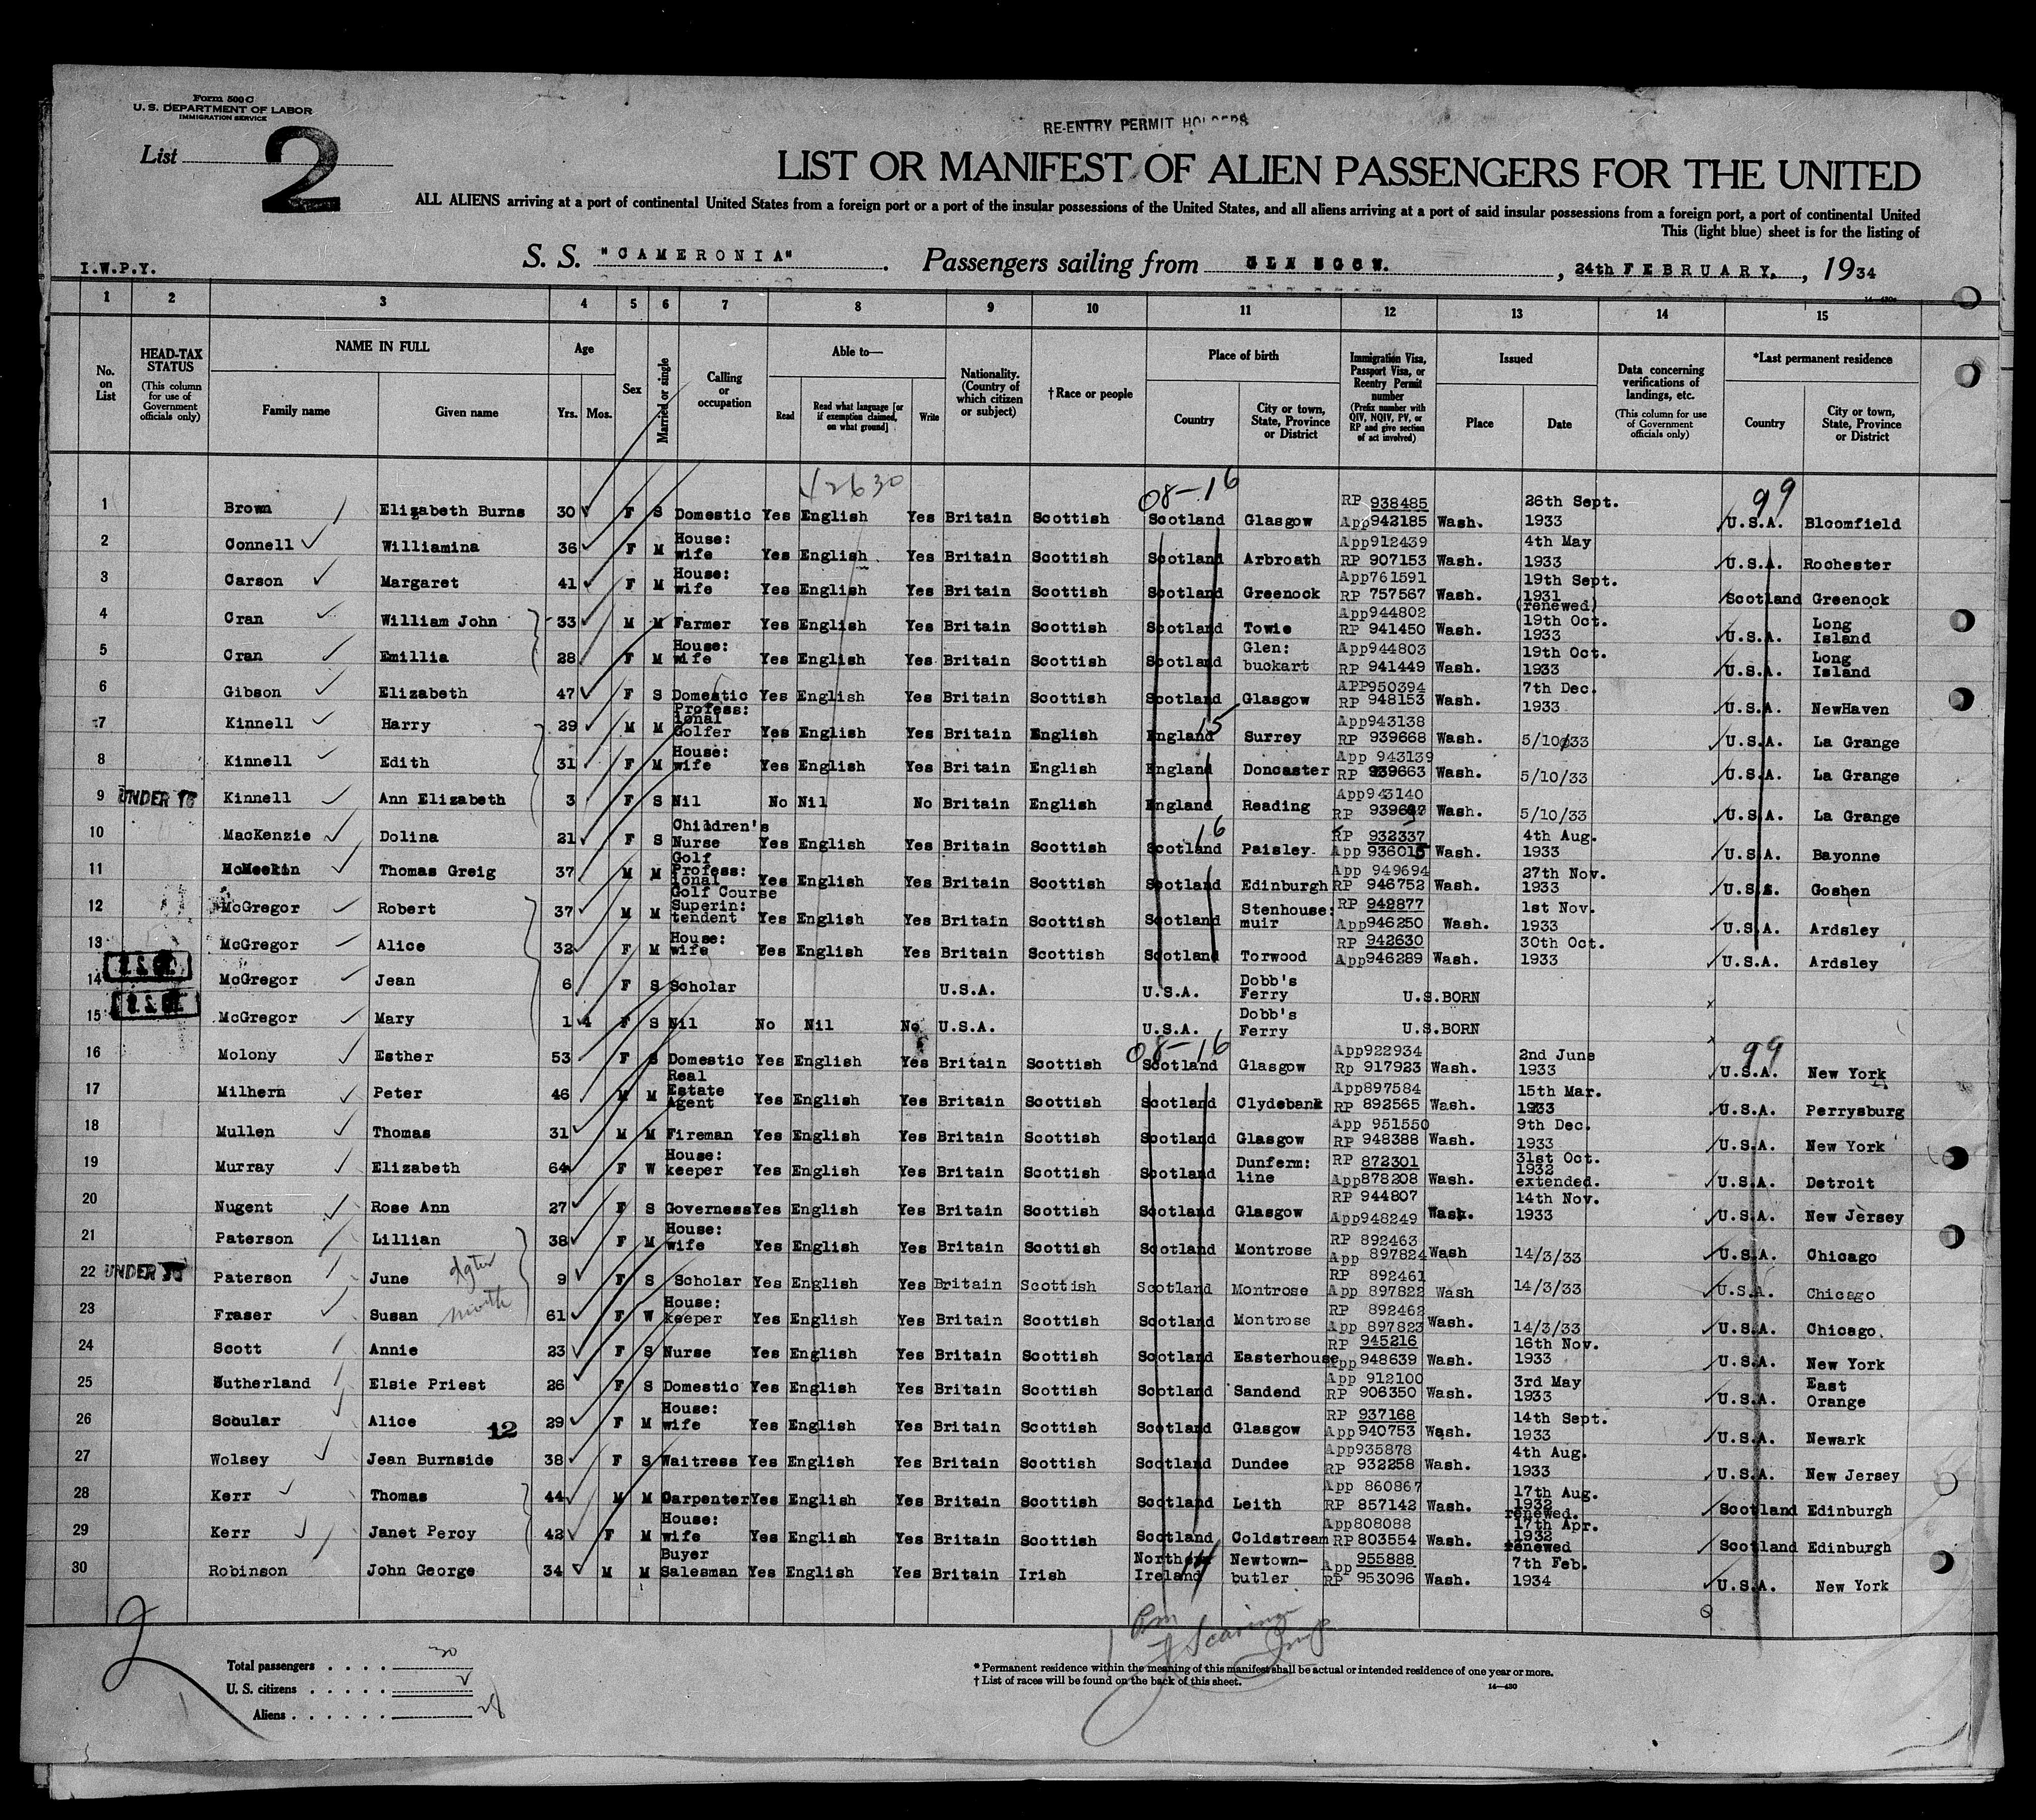 Form 500 C
U. S. DEPARTMENT OF LABOR
IMMIGRATION SERVICE
List 2
RE-ENTRY PERMIT HOLDERS
LIST OR MANIFEST OF ALIEN PASSENGERS FOR THE UNITED
ALL ALIENS arriving at a port of continental United States from a foreign port or a port of the insular possessions of the United States, and all aliens arriving at a port of said insular possessions from a foreign port, a port of continental United
This (light blue) sheet is for the listing of
I.W.P.Y.
S. S. "CAMERONIA". Passengers sailing from GLASGOW. , 24th FEBRUARY, , 1934
1 2 3 4 5 6 7 8 9 10 11 12 13 14 15
No. on List
HEAD-TAX STATUS (This column for use of Government officials only)
NAME IN FULL Family name Given name
Age Yrs. Mos.
Sex
Married or single
Calling or occupation
Able to— Read Read what language [or if exemption claimed, on what ground] Write
Nationality. (Country of which citizen or subject)
† Race or people
Place of birth Country City or town, State, Province or District
Immigration Visa, Passport Visa, or Reentry Permit number (Prefix number with QIV, NQIV, PV, or RP and give section of act involved)
Issued Place Date
Data concerning verifications of landings, etc. (This column for use of Government officials only)
*Last permanent residence Country City or town, State, Province or District
42630 08-16 99
1 Brown Elizabeth Burns 30 F S Domestic Yes English Yes Britain Scottish Scotland Glasgow RP 938485 App942185 Wash. 26th Sept. 1933 U.S.A. Bloomfield
2 Connell Williamina 36 F M House: wife Yes English Yes Britain Scottish Scotland Arbroath App912439 RP 907153 Wash. 4th May 1933 U.S.A. Rochester
3 Carson Margaret 41 F M House: wife Yes English Yes Britain Scottish Scotland Greenock App761591 RP 757567 Wash. 19th Sept. 1931 (renewed) Scotland Greenock
4 Cran William John 33 M M Farmer Yes English Yes Britain Scottish Scotland Towie App944802 RP 941450 Wash. 19th Oct. 1933 U.S.A. Long Island
5 Cran Emillia 28 F M House: wife Yes English Yes Britain Scottish Scotland Glen: buckart App944803 RP 941449 Wash. 19th Oct. 1933 U.S.A. Long Island
6 Gibson Elizabeth 47 F S Domestic Yes English Yes Britain Scottish Scotland Glasgow APP950394 RP 948153 Wash. 7th Dec. 1933 U.S.A. NewHaven
7 Kinnell Harry 29 M M Profess: ional Golfer Yes English Yes Britain English England 15 Surrey App943138 RP 939668 Wash. 5/10/33 U.S.A. La Grange
8 Kinnell Edith 31 F M House: wife Yes English Yes Britain English England Doncaster App 943139 RP 939663 Wash. 5/10/33 U.S.A. La Grange
9 UNDER 16 Kinnell Ann Elizabeth 3 F S Nil No Nil No Britain English England Reading App943140 RP Wash. 5/10/33 U.S.A. La Grange
10 MacKenzie Dolina 21 F S Children's Nurse Yes English Yes Britain Scottish Scotland 16 Paisley. RP 932337 App 936015 Wash. 4th Aug. 1933 U.S.A. Bayonne
11 McMeekin Thomas Greig 37 M M Golf Profess: ional Yes English Yes Britain Scottish Scotland Edinburgh App 949694 RP 946752 Wash. 27th Nov. 1933 U.S.A. Goshen
12 McGregor Robert 37 M M Golf Course Superin: tendent Yes English Yes Britain Scottish Scotland Stenhouse: muir RP 942877 App946250 Wash. 1st Nov. 1933 U.S.A. Ardsley
13 McGregor Alice 32 F M House: wife Yes English Yes Britain Scottish Scotland Torwood RP 942630 App946289 Wash. 30th Oct. 1933 U.S.A. Ardsley
14 McGregor Jean 6 F S Scholar U.S.A. U.S.A. Dobb's Ferry U.S.BORN x
15 McGregor Mary 1 4 F S Nil No Nil No U.S.A. U.S.A. Dobb's Ferry U.S.BORN x
08-16 99
16 Molony Esther 53 F S Domestic Yes English Yes Britain Scottish Scotland Glasgow App922934 Rp 917923 Wash. 2nd June 1933 U.S.A. New York
17 Milhern Peter 46 M M Real Estate Agent Yes English Yes Britain Scottish Scotland Clydebank App897584 RP 892565 Wash. 15th Mar. 1933 U.S.A. Perrysburg
18 Mullen Thomas 31 M M Fireman Yes English Yes Britain Scottish Scotland Glasgow App 951550 RP 948388 Wash. 9th Dec. 1933 U.S.A. New York
19 Murray Elizabeth 64 F W House: keeper Yes English Yes Britain Scottish Scotland Dunferm: line RP 872301 App878208 Wash. 31st Oct. 1932 extended. U.S.A. Detroit
20 Nugent Rose Ann 27 F S Governess Yes English Yes Britain Scottish Scotland Glasgow RP 944807 App948249 Wash. 14th Nov. 1933 U.S.A. New Jersey
21 Paterson Lillian 38 F M House: wife Yes English Yes Britain Scottish Scotland Montrose RP 892463 App 897824 Wash 14/3/33 U.S.A. Chicago
22 UNDER 16 Paterson June dgtr 9 F S Scholar Yes English Yes Britain Scottish Scotland Montrose RP 892461 App 897822 Wash 14/3/33 U.S.A. Chicago
23 Fraser Susan moth 61 F W House: keeper Yes English Yes Britain Scottish Scotland Montrose RP 892462 App 897823 Wash. 14/3/33 U.S.A. Chicago.
24 Scott Annie 23 F S Nurse Yes English Yes Britain Scottish Scotland Easterhouse RP 945216 App 948639 Wash. 16th Nov. 1933 U.S.A. New York
25 Sutherland Elsie Priest 26 F S Domestic Yes English Yes Britain Scottish Scotland Sandend App 912100 RP 906350 Wash. 3rd May 1933 U.S.A. East Orange
26 Scoular Alice 12 29 F M House: wife Yes English Yes Britain Scottish Scotland Glasgow RP 937168 App940753 Wash. 14th Sept. 1933 U.S.A. Newark
27 Wolsey Jean Burnside 38 F S Waitress Yes English Yes Britain Scottish Scotland Dundee App935878 RP 932258 Wash. 4th Aug. 1933 U.S.A. New Jersey
28 Kerr Thomas 44 M M Carpenter Yes English Yes Britain Scottish Scotland Leith App 860867 RP 857142 Wash. 17th Aug. 1932 renewed. Scotland Edinburgh
29 Kerr Janet Percy 42 F M House: wife Yes English Yes Britain Scottish Scotland Coldstream App808088 RP 803554 Wash. 17th Apr. 1932 renewed Scotland Edinburgh
30 Robinson John George 34 M M Buyer Salesman Yes English Yes Britain Irish Northern Ireland 14 Newtown- butler App 955888 RP 953096 Wash. 7th Feb. 1934 U.S.A. New York
2
Total passengers . . . . 30
U. S. citizens . . . . . 2
Aliens . . . . . . 28
* Permanent residence within the meaning of this manifest shall be actual or intended residence of one year or more.
† List of races will be found on the back of this sheet.
14—430